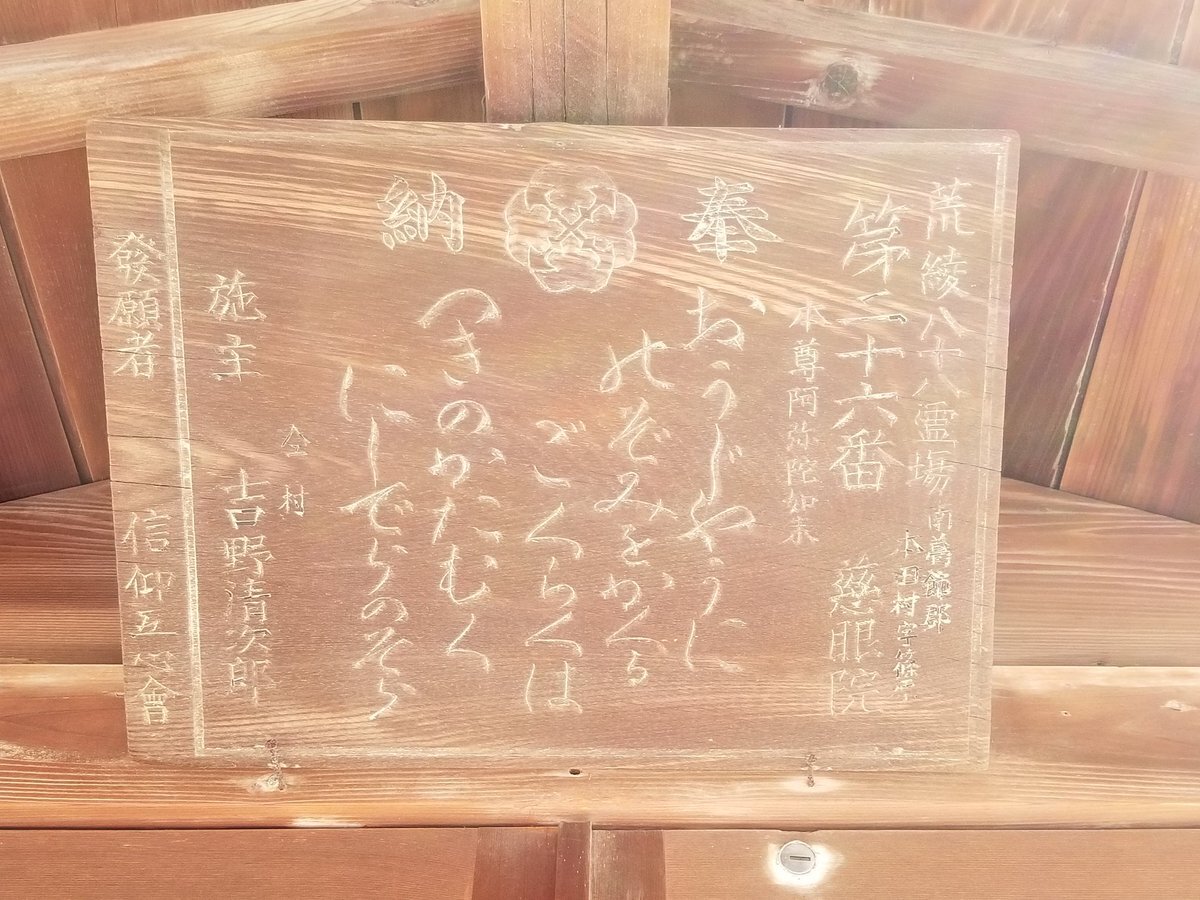 荒綾八十八霊場 南葛飾郡
本田村字篠原
第二十六番 慈眼院
本尊阿弥陀如来
奉納
おうじやうに
のぞみをかくる
ごくらくは
つきのかたむく
にしでらのそら
施主 仝村 吉野清次郎
發願者 信仰五心會